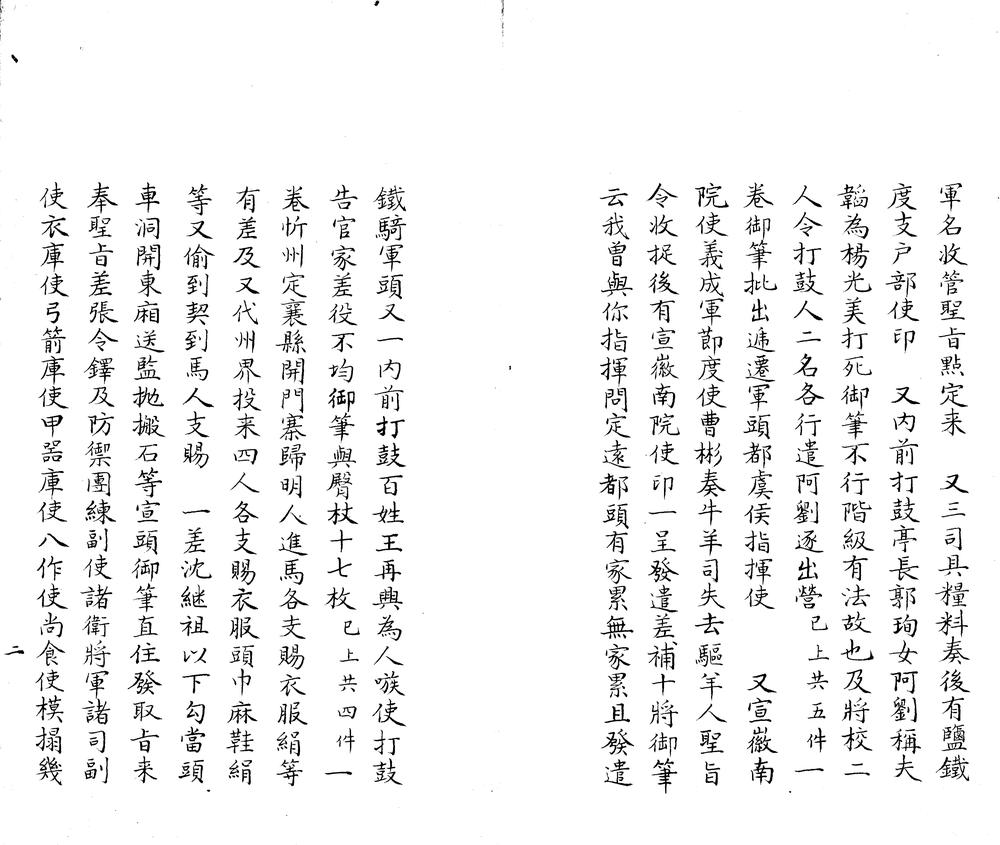 軍名收管聖旨點定来　又三司具糧料奏後有鹽鐵
度支户部使印　又内前打鼓亭長郭珣女阿劉稱夫
韜為楊光美打死御筆不行階級有法故也及將校二
人令打鼓人二名各行遣阿劉逐出營已上共五件一
卷御筆批出遞遷軍頭都虞侯指揮使　　又宣徽南
院使義成軍節度使曹彬奏牛羊司失去驅羊人聖旨
令收捉後有宣徽南院使印一呈發遣差補十將御筆
云我曾與你指揮問定遠都頭有家累無家累且發遣
鐵騎軍頭又一内前打鼓百姓王再興為人嗾使打鼓
告官家差役不均御筆與臀杖十七枚已上共四件一
卷忻州定襄縣開門寨歸明人進馬各支賜衣服絹等
有差及又代州界投来四人各支賜衣服頭巾麻鞋絹
等又偷到契到馬人支賜　一差沈継祖以下勾當頭
車洞開東廂送監抛搬石等宣頭御筆直住發取旨来
奉聖旨差張令鐸及防禦團練副使諸衛將軍諸司副
使衣庫使弓箭庫使甲器庫使八作使尚食使模搨幾
二